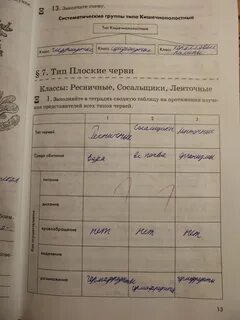 13. Заполните схему.
Систематические группы типа Кишечнополостные
Тип Кишечнополостные
Класс Класс Класс
§ 7. Тип Плоские черви
Классы: Ресничные, Сосальщики, Ленточные
1. Заполняйте в тетрадях сводную таблицу на протяжении изучения представителей всех типов червей.
1 2 3
Тип червей Ресничные Сосальщики Ленточные
Среда обитания вода
питание
дыхание
кровообращение нет нет нет
выделение
размножение гермафродиты гермафродиты гермафродиты
13